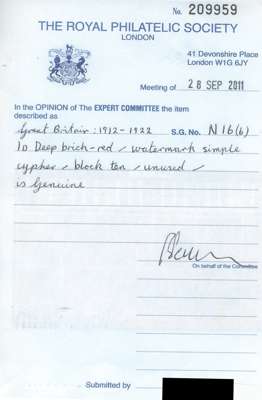 No. 209959
THE ROYAL PHILATELIC SOCIETY
LONDON
41 Devonshire Place
London W1G 6JY
Meeting of 28 SEP 2011
In the OPINION of The EXPERT COMMITTEE the item
described as
Great Britain: 1912-1922 S.G. No. N16(6)
1d Deep brick-red / watermark simple
cypher / block ten / unused /
is Genuine
On behalf of the Committee
Submitted by